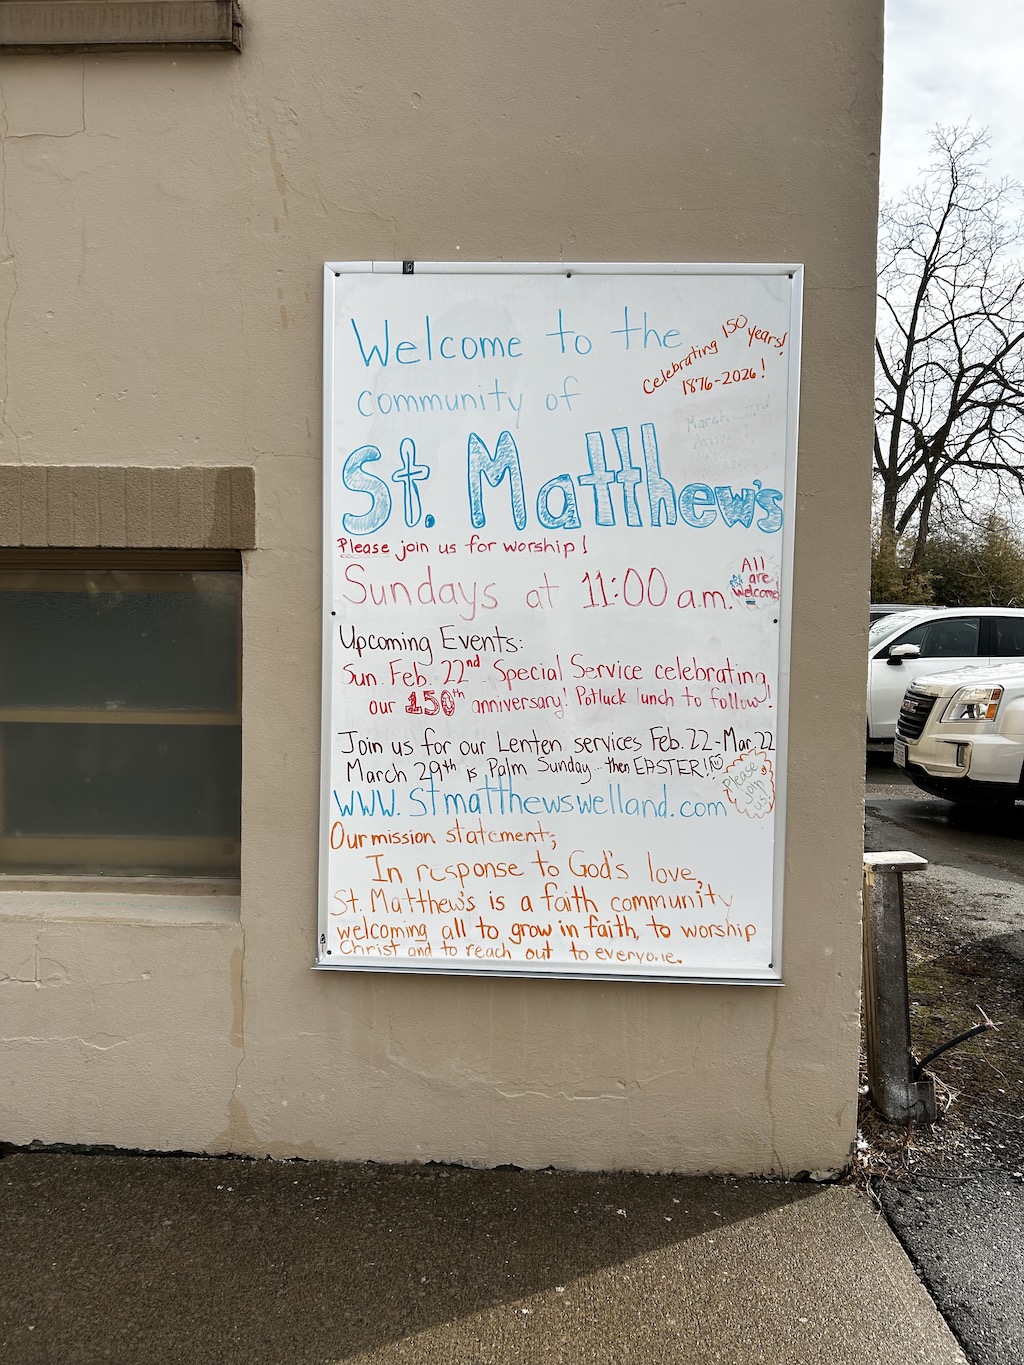 Welcome to the
Celebrating 150 years!
1876-2026!
community of
March
St. Matthew's
Please join us for worship!
Sundays at 11:00 a.m.
All
are
Welcome!
Upcoming Events:
Sun. Feb. 22nd Special Service celebrating
our 150th anniversary! Potluck lunch to follow!
Join us for our Lenten services Feb. 22-Mar. 22
March 29th is Palm Sunday...then EASTER!
Please
join
us!
www.stmatthewswelland.com
Our mission statement;
In response to God's love,
St. Matthew's is a faith community
welcoming all to grow in faith, to worship
Christ and to reach out to everyone.